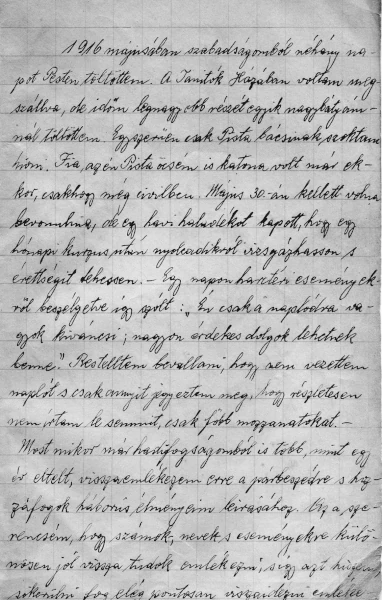 1916 májusában szabadságomból néhány na-
pot Pesten töltöttem. A Tanítók Házában voltam meg-
szállva, de időm legnagyobb részét egyik nagybátyám-
nál töltöttem. Egyszerűen csak Pista bácsinak szoktam
hívni. Fia, a gén Pista öcsém is katona volt már ek-
kor, csakhogy még civilben. Május 30.-án kellett volna
bevonulnia, de egy havi haladékot kapott, hogy egy
hónapi kurzus után nyolcadikról vizsgázhasson s
érettségit tehessen. – Egy napon harctéri események-
ről beszélgetve így szólt: „Én csak a naplódra va-
gyok kíváncsi; nagyon érdekes dolgok lehetnek
benne." Restelltem bevallani, hogy nem vezettem
naplót s csak annyit jegyeztem meg, hogy részletesen
nem írtam le semmit, csak főbb mozzanatokat. –
Most mikor már hadifogságomból is több, mint egy
év eltelt, visszaemlékezem erre a párbeszédre s hoz-
záfogok háborús élményeim leírásához. Az a sze-
rencsém, hogy számok, nevek s eseményekre külö-
nösen jól vissza tudok emlékezni, s így azt hiszem
sikerülni fog elég pontosan